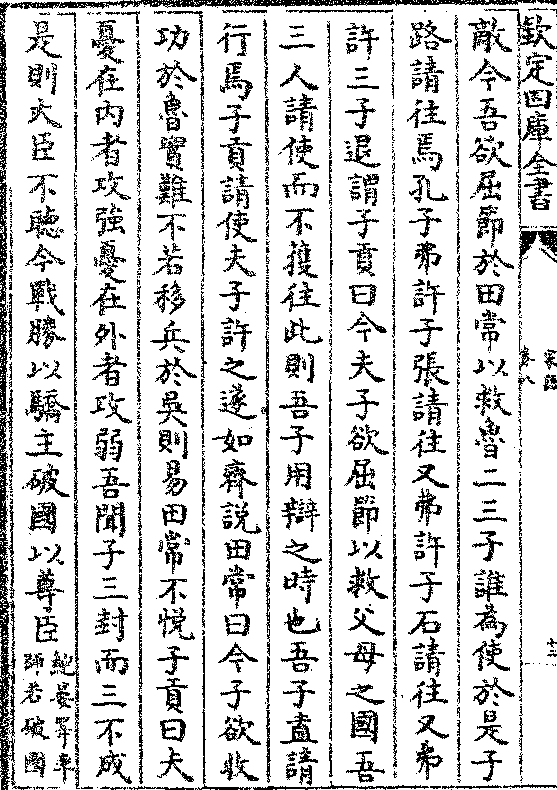 欽定四庫全書
家語
卷八
十三
敵今吾欲屈節於田常以救魯二三子誰為使於是子
路請往焉孔子弗許子張請往又弗許子石請往又弗
許三子退謂子貢曰今夫子欲屈節以救父母之國吾
三人請使而不獲往此則吾子用辯之時也吾子盍請
行焉子貢請使夫子許之遂如齊說田常曰今子欲收
功於魯實難不若移兵於吳則易田常不悅子貢曰夫
憂在內者攻強憂在外者攻弱吾聞子三封而三不成
是則大臣不聽今戰勝以驕主破國以尊臣
鮑晏等率
師若破國